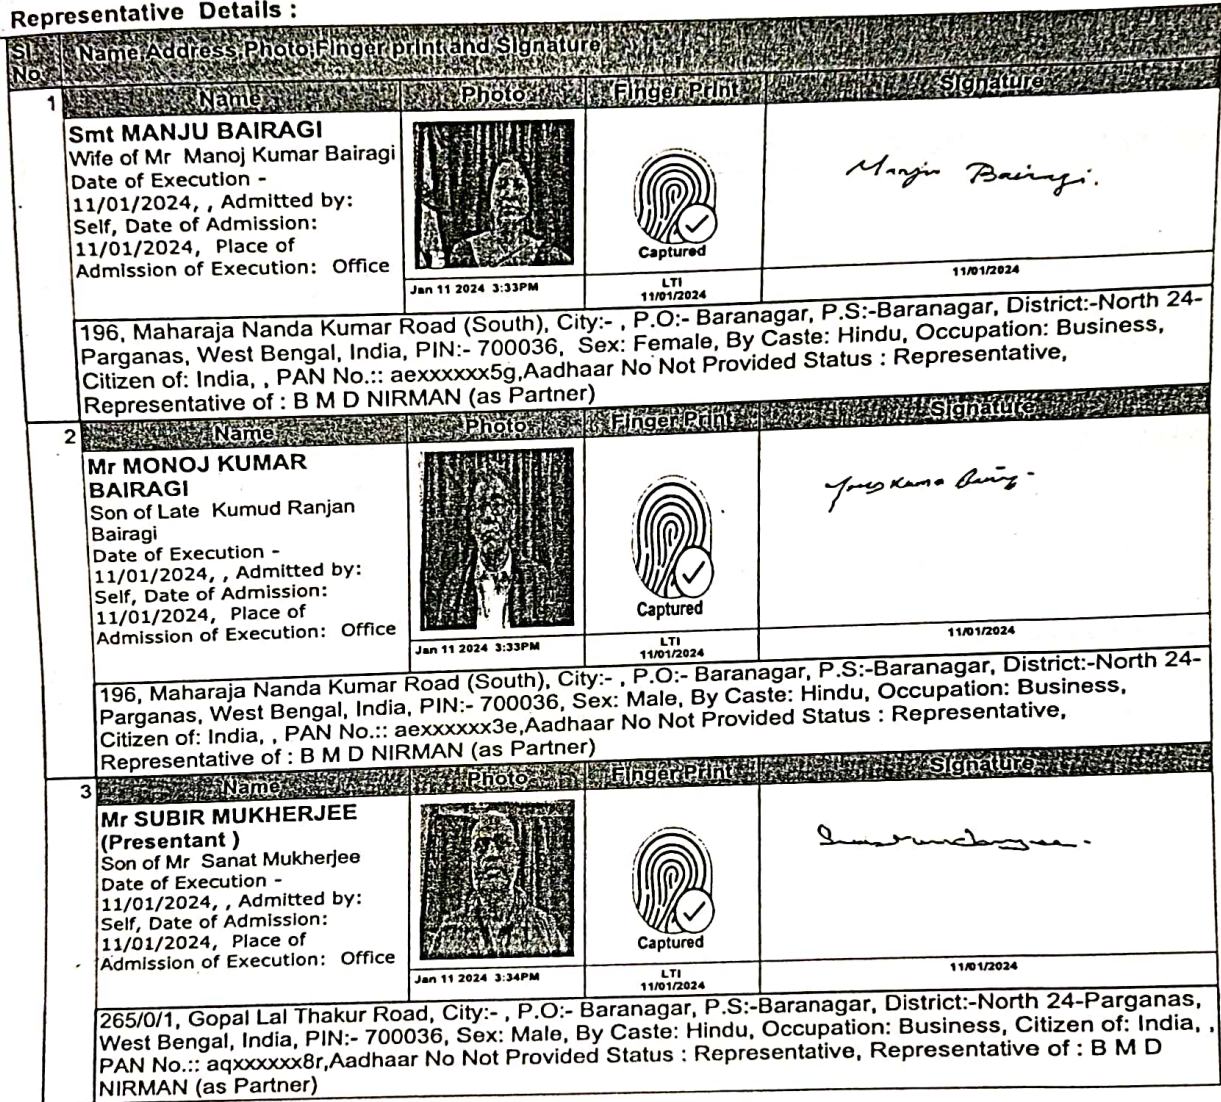 Representative Details :
Sl. No.
Name,Address,Photo,Finger print and Signature
1
Name
Photo
Finger Print
Signature
Smt MANJU BAIRAGI
Wife of Mr Manoj Kumar Bairagi
Date of Execution -
11/01/2024, , Admitted by:
Self, Date of Admission:
11/01/2024, Place of
Admission of Execution: Office
Captured
Manju Bairagi.
Jan 11 2024 3:33PM
LTI
11/01/2024
11/01/2024
196, Maharaja Nanda Kumar Road (South), City:- , P.O:- Baranagar, P.S:-Baranagar, District:-North 24-
Parganas, West Bengal, India, PIN:- 700036, Sex: Female, By Caste: Hindu, Occupation: Business,
Citizen of: India, , PAN No.:: aexxxxxx5g,Aadhaar No Not Provided Status : Representative,
Representative of : B M D NIRMAN (as Partner)
2
Name
Photo
Finger Print
Signature
Mr MONOJ KUMAR
BAIRAGI
Son of Late Kumud Ranjan
Bairagi
Date of Execution -
11/01/2024, , Admitted by:
Self, Date of Admission:
11/01/2024, Place of
Admission of Execution: Office
Captured
Jan 11 2024 3:33PM
LTI
11/01/2024
11/01/2024
196, Maharaja Nanda Kumar Road (South), City:- , P.O:- Baranagar, P.S:-Baranagar, District:-North 24-
Parganas, West Bengal, India, PIN:- 700036, Sex: Male, By Caste: Hindu, Occupation: Business,
Citizen of: India, , PAN No.:: aexxxxxx3e,Aadhaar No Not Provided Status : Representative,
Representative of : B M D NIRMAN (as Partner)
3
Name
Photo
Finger Print
Signature
Mr SUBIR MUKHERJEE
(Presentant )
Son of Mr Sanat Mukherjee
Date of Execution -
11/01/2024, , Admitted by:
Self, Date of Admission:
11/01/2024, Place of
Admission of Execution: Office
Captured
Jan 11 2024 3:34PM
LTI
11/01/2024
11/01/2024
265/0/1, Gopal Lal Thakur Road, City:- , P.O:- Baranagar, P.S:-Baranagar, District:-North 24-Parganas,
West Bengal, India, PIN:- 700036, Sex: Male, By Caste: Hindu, Occupation: Business, Citizen of: India, ,
PAN No.:: aqxxxxxx8r,Aadhaar No Not Provided Status : Representative, Representative of : B M D
NIRMAN (as Partner)